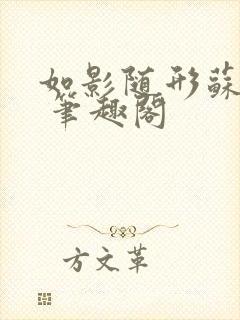 如影随形蘇
笔趣阁
方文革